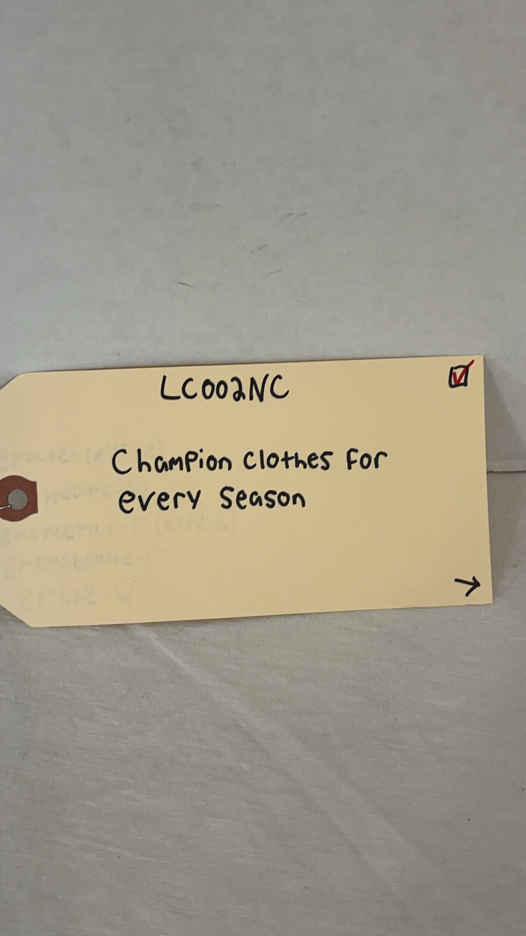 LC002NC
Champion Clothes For
every Season